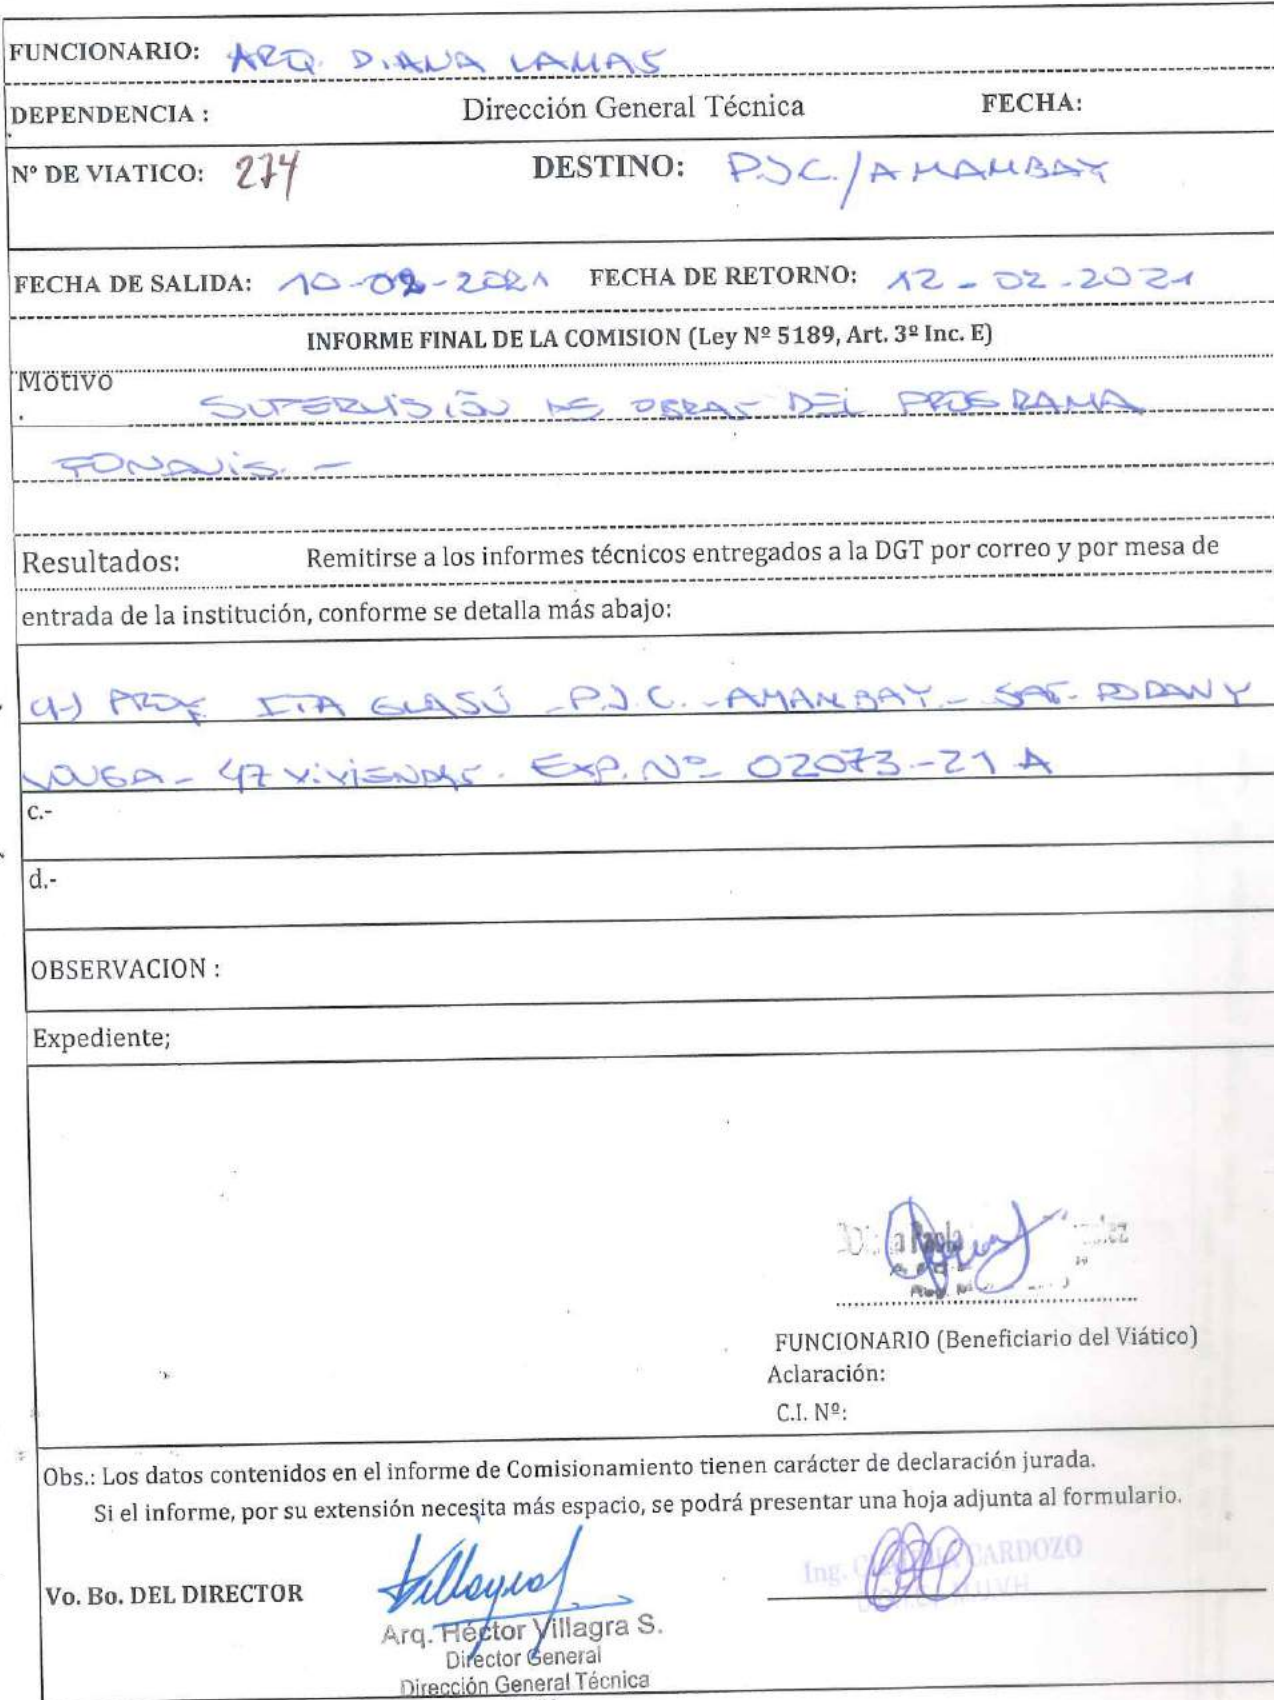 FUNCIONARIO: ARQ. DIANA LAMAS
DEPENDENCIA : Dirección General Técnica FECHA:
Nº DE VIATICO: 274 DESTINO: P.J.C./AMAMBAY
FECHA DE SALIDA: 10-02-2021 FECHA DE RETORNO: 12-02-2021
INFORME FINAL DE LA COMISION (Ley Nº 5189, Art. 3º Inc. E)
Motivo
. SUPERVISIÓN DE OBRAS DEL PROGRAMA
FONAVIS.-
Resultados: Remitirse a los informes técnicos entregados a la DGT por correo y por mesa de
entrada de la institución, conforme se detalla más abajo:
PROY. ITA GUASÚ - P.J.C. - AMAMBAY - SAT.
47 VIVIENDAS. EXP. Nº 02073-21 A
c.-
d.-
OBSERVACION :
Expediente;
FUNCIONARIO (Beneficiario del Viático)
Aclaración:
C.I. Nº:
Obs.: Los datos contenidos en el informe de Comisionamiento tienen carácter de declaración jurada.
Si el informe, por su extensión necesita más espacio, se podrá presentar una hoja adjunta al formulario.
Vo. Bo. DEL DIRECTOR
Ing. CARDOZO
Arq. Héctor Villagra S.
Director General
Dirección General Técnica